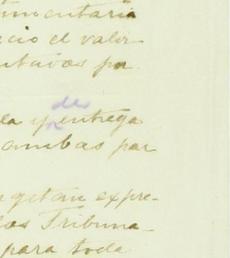 mentaria
cio el valor
ntavos pa
des
la y entrega
ambas par
getan expre-
los Tribuna-
para toda